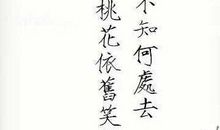 不知何處去
桃花依舊笑